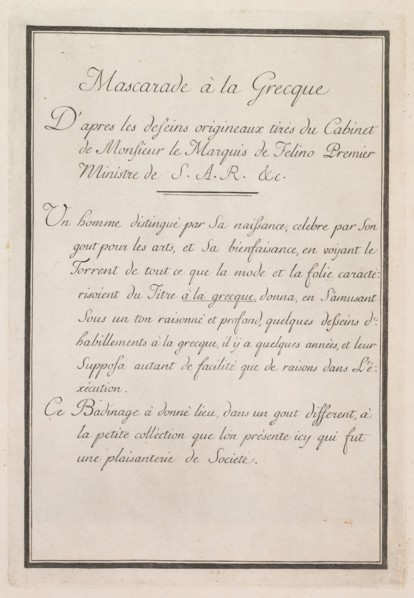 Mascarade à la Grecque
D'apres les desseins origineaux tirés du Cabinet
de Monsieur le Marquis de Felino Premier
Ministre de S. A. R. &c.
Un homme distingué par Sa naissance, celebre par Son
gout pour les arts, et Sa bienfaisance, en voyant le
Torrent de tout ce que la mode et la folie caracté-
risoient du Titre à la grecque, donna, en S'amusant
Sous un ton raisonné et profond, quelques desseins d'-
habillements à la grecque, il ÿ a quelques années, et leur
Supposa autant de facilité que de raisons dans L'é-
xécution.
Ce Badinage à donné lieu, dans un gout different, à
la petite collection que l'on présente icy qui fut
une plaisanterie de Societé.